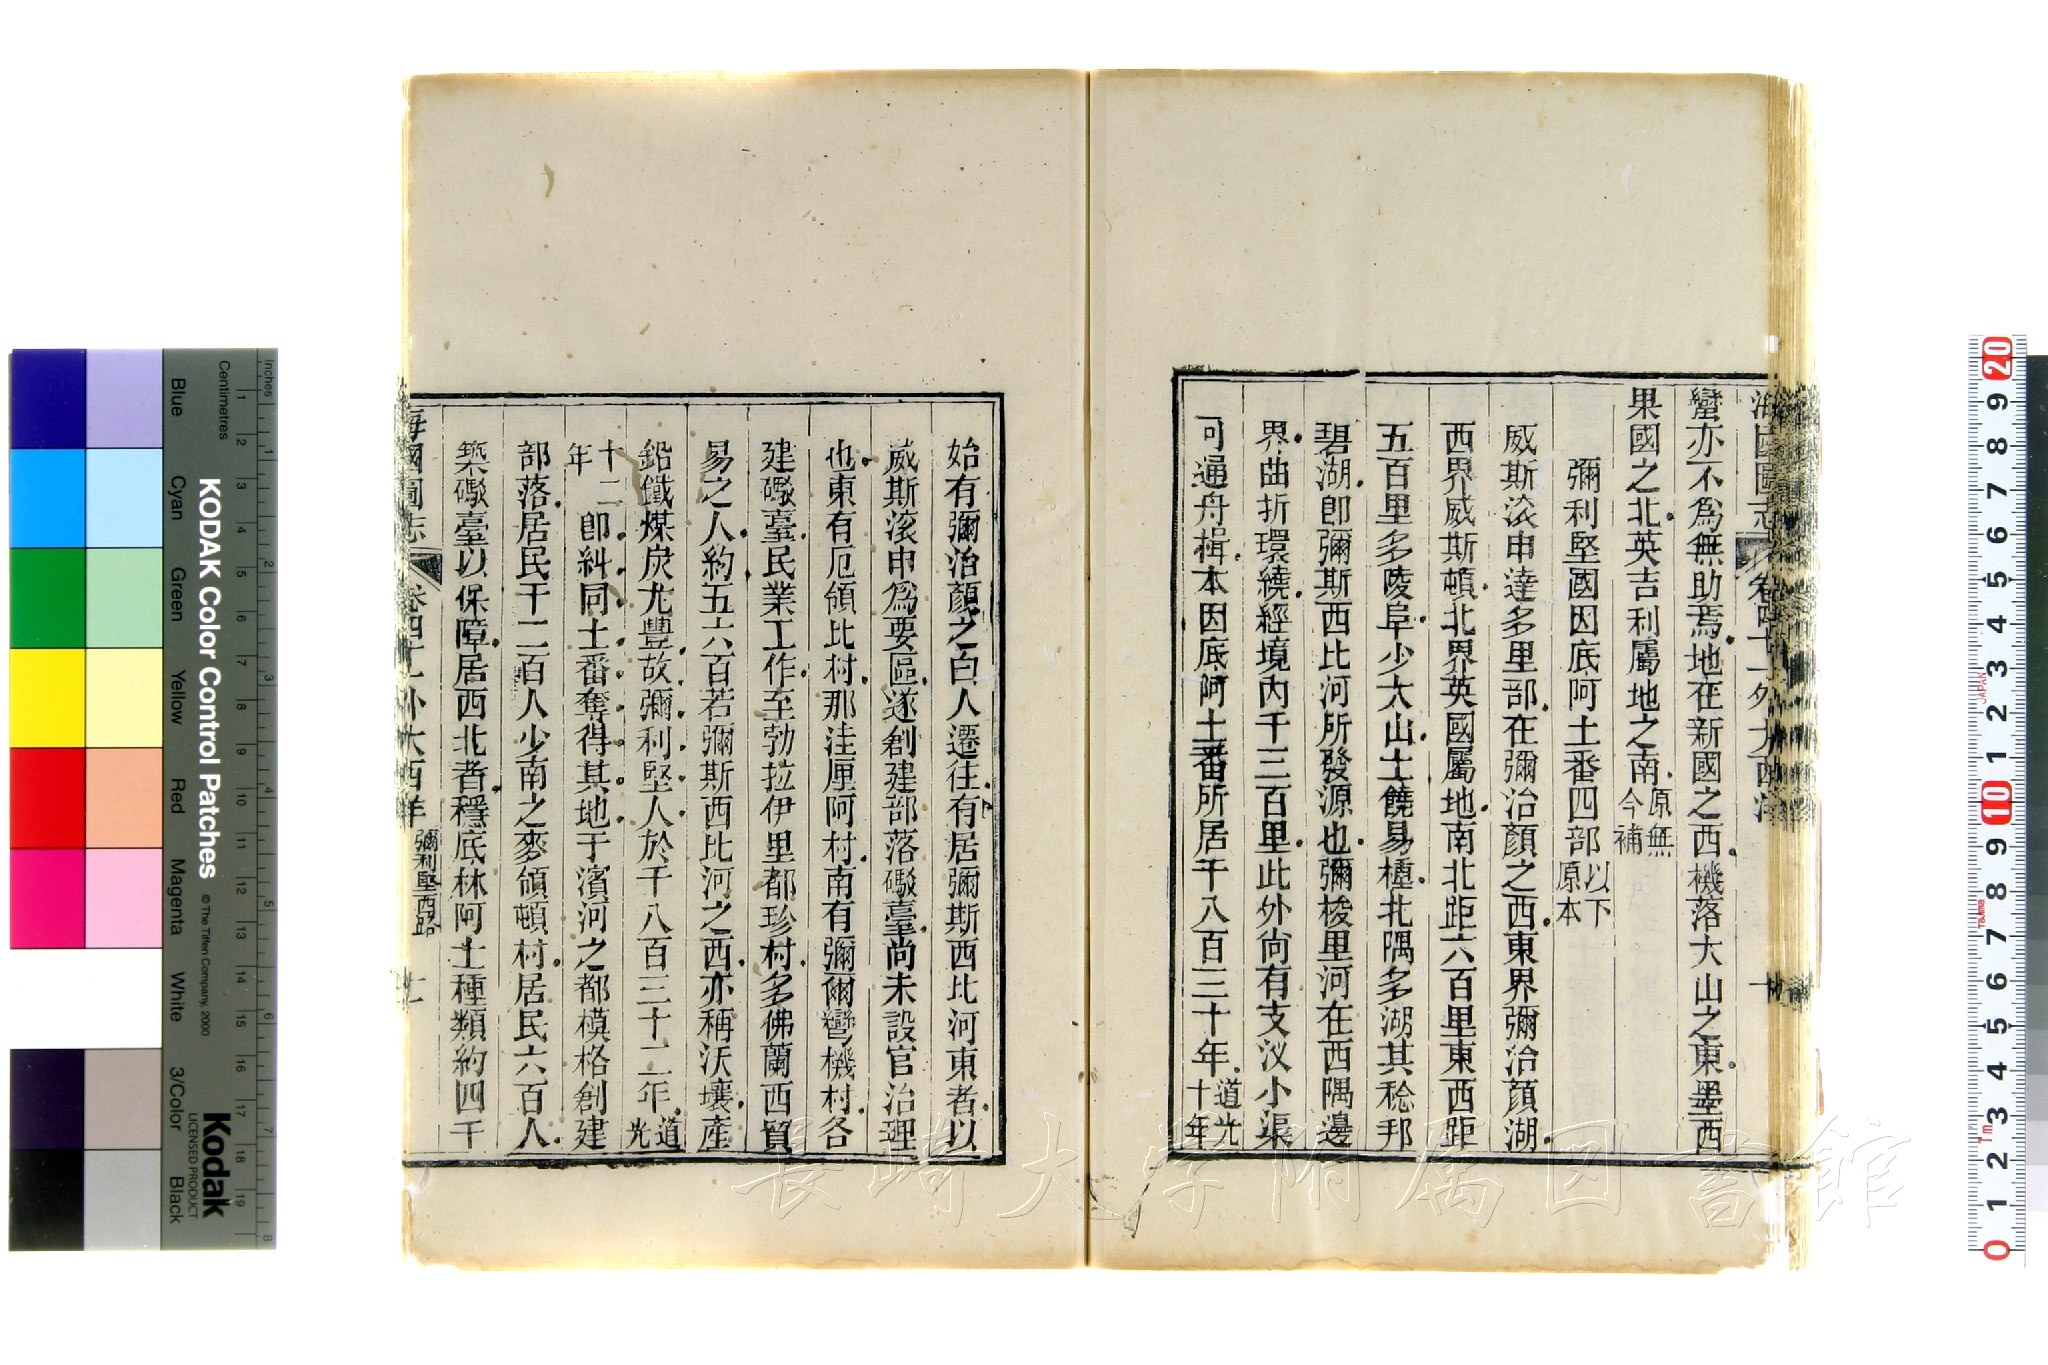 蠻亦不爲無助焉地在新國之西機落大山之東墨西
果國之北英吉利屬地之南原無今補
彌利堅國因底阿土番四部以下原本
威斯滾申達多里部在彌治顏之西東界彌治顏湖
西界威斯頓北界英國屬地南北距六百里東西距
五百里多陵阜少大山土饒易種北隅多湖其稔邦
碧湖卽彌斯西比河所發源也彌梭里河在西隅邊
界曲折環繞經境內千三百里此外尚有支汊小渠
可通舟楫本因底阿土番所居千八百三十年道光十年
始有彌治顏之白人遷往有居彌斯西比河東者以
威斯滾申爲要區遂創建部落礮臺尚未設官治理
也東有厄領比村那洼厘阿村南有彌爾彎機村各
建礮臺民業工作至勃拉伊里都珍村多佛蘭西貿
易之人約五六百若彌斯西比河之西亦稱沃壤產
鉛鐵煤炭尤豐故彌利堅人於千八百三十二年道光
十二年卽糾同土番奪得其地于濱河之都模格創建
部落居民千二百人少南之麥領頓村居民六百人
築礮臺以保障居西北者穩底林阿土種類約四千
海國圖志 卷四十一外大西洋 彌利堅西路 十一
KODAK Color Control Patches © The Tiffen Company, 2000
Kodak
LICENSED PRODUCT
Inches
Centimetres
Blue
Cyan
Green
Yellow
Red
Magenta
White
3/Color
Black
長崎大学附属図書館